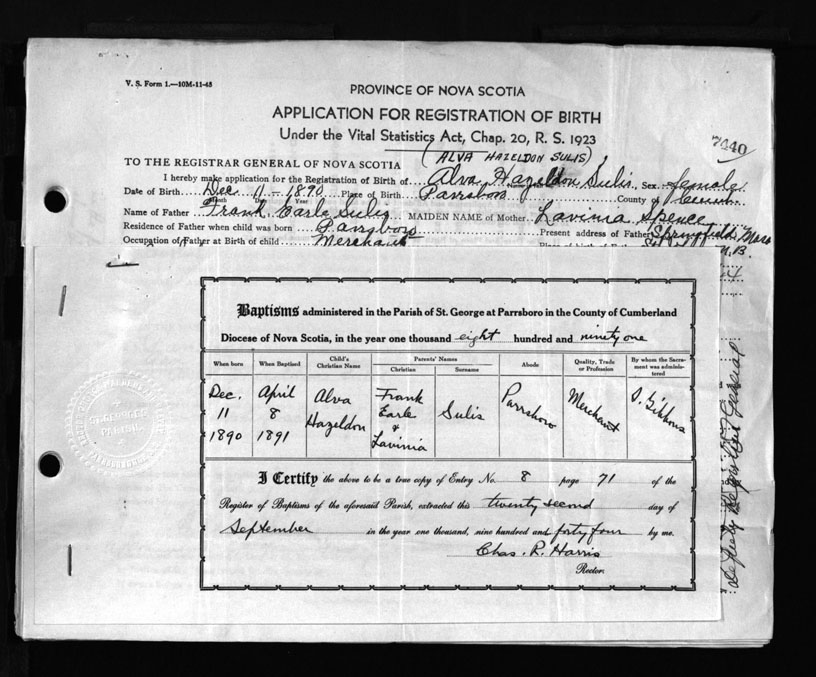 V. S. Form 1.—10M-11-43
PROVINCE OF NOVA SCOTIA
APPLICATION FOR REGISTRATION OF BIRTH
Under the Vital Statistics Act, Chap. 20, R. S. 1923
7440
(ALVA HAZELDON SULIS)
TO THE REGISTRAR GENERAL OF NOVA SCOTIA
I hereby make application for the Registration of Birth of Alva Hazeldon Sulis Sex female
Date of Birth Dec. 11 - 1890 Place of Birth Parrsboro County of Cumb.
Month Day Year
Name of Father Frank Earle Sulis MAIDEN NAME of Mother Lavinia Spence
Residence of Father when child was born Parrsboro Present address of Father Springfield Mass
Occupation of Father at Birth of child Merchant N.B.
Baptisms administered in the Parish of St. George at Parrsboro in the County of Cumberland
Diocese of Nova Scotia, in the year one thousand eight hundred and ninety one
When born When Baptised Child's Christian Name Parents' Names Christian Surname Abode Quality, Trade or Profession By whom the Sacrament was administered
Dec. 11 1890 April 8 1891 Alva Hazeldon Frank Earle & Lavinia Sulis Parrsboro Merchant S. Gibbons
I Certify the above to be a true copy of Entry No. 8 page 71 of the
Register of Baptisms of the aforesaid Parish, extracted this twenty second day of
September in the year one thousand, nine hundred and forty four by me.
Chas. R. Harris
Rector.
ST. GEORGES PARISH
Deputy Registrar General